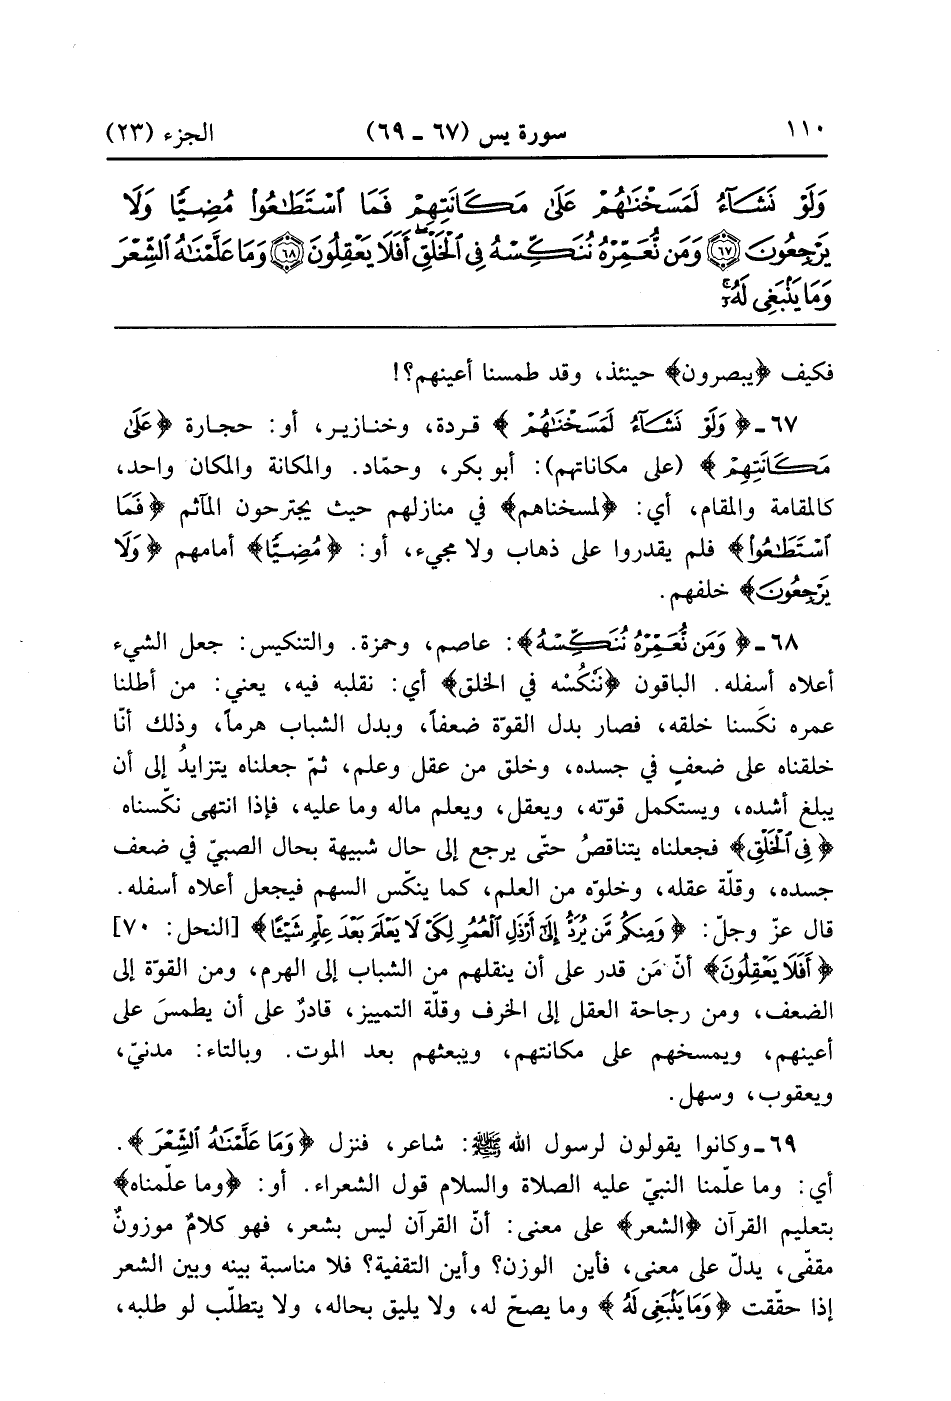 ١١٠ سورة يس (٦٧ - ٦٩) الجزء (٢٣)
وَلَوْ نَشَآءُ لَمَسَخْنَٰهُمْ عَلَىٰ مَكَانَتِهِمْ فَمَا ٱسْتَطَٰعُوا۟ مُضِيًّا وَلَا
يَرْجِعُونَ ﴿٦٧﴾ وَمَن نُّعَمِّرْهُ نُنَكِّسْهُ فِى ٱلْخَلْقِ ۖ أَفَلَا يَعْقِلُونَ ﴿٦٨﴾ وَمَا عَلَّمْنَٰهُ ٱلشِّعْرَ
وَمَا يَنۢبَغِى لَهُۥٓ ۚ
فكيف ﴿يبصرون﴾ حينئذ، وقد طمسنا أعينهم؟!
٦٧ - ﴿ وَلَوْ نَشَآءُ لَمَسَخْنَٰهُمْ ﴾ قردة، وخنازير، أو: حجارة ﴿عَلَىٰ
مَكَانَتِهِمْ ﴾ (على مكاناتهم): أبو بكر، وحمّاد. والمكانة والمكان واحد،
كالمقامة والمقام، أي: ﴿لمسخناهم﴾ في منازلهم حيث يجترحون المآثم ﴿فَمَا
ٱسْتَطَٰعُوا۟﴾ فلم يقدروا على ذهاب ولا مجيء، أو: ﴿مُضِيًّا﴾ أمامهم ﴿وَلَا
يَرْجِعُونَ﴾ خلفهم.
٦٨ - ﴿ وَمَن نُّعَمِّرْهُ نُنَكِّسْهُ﴾: عاصم، وحمزة. والتنكيس: جعل الشيء
أعلاه أسفله. الباقون ﴿نَنْكُسْه في الخلق﴾ أي: نقلبه فيه، يعني: من أطلنا
عمره نكَسنا خلقه، فصار بدل القوّة ضعفاً، وبدل الشباب هرماً، وذلك أنّا
خلقناه على ضعفٍ في جسده، وخلق من عقل وعلم، ثمّ جعلناه يتزايدُ إلى أن
يبلغ أشده، ويستكمل قوّته، ويعقل، ويعلم ماله وما عليه، فإذا انتهى نكّسناه
﴿فِى ٱلْخَلْقِ﴾ فجعلناه يتناقصُ حتّى يرجع إلى حال شبيهة بحال الصبيّ في ضعف
جسده، وقلّة عقله، وخلوّه من العلم، كما ينكّس السهم فيجعل أعلاه أسفله.
قال عزّ وجلّ: ﴿ وَمِنكُم مَّن يُرَدُّ إِلَىٰٓ أَرْذَلِ ٱلْعُمُرِ لِكَىْ لَا يَعْلَمَ بَعْدَ عِلْمٍ شَيْـًٔا﴾ [النحل: ٧٠]
﴿ أَفَلَا يَعْقِلُونَ﴾ أنّ مَن قدر على أن ينقلهم من الشباب إلى الهرم، ومن القوّة إلى
الضعف، ومن رجاحة العقل إلى الخرف وقلّة التمييز، قادرٌ على أن يطمسَ على
أعينهم، ويمسخهم على مكانتهم، ويبعثهم بعد الموت. وبالتاء: مدنيّ،
ويعقوب، وسهل.
٦٩ - وكانوا يقولون لرسول الله ﷺ: شاعر، فنزل ﴿ وَمَا عَلَّمْنَٰهُ ٱلشِّعْرَ﴾.
أي: وما علّمنا النبيّ عليه الصلاة والسلام قول الشعراء. أو: ﴿وما علّمناه﴾
بتعليم القرآن ﴿الشعر﴾ على معنى: أنّ القرآن ليس بشعر، فهو كلامٌ موزونٌ
مقفّى، يدلّ على معنى، فأين الوزن؟ وأين التقفية؟ فلا مناسبة بينه وبين الشعر
إذا حقّقت ﴿ وَمَا يَنۢبَغِى لَهُ ﴾ وما يصحّ له، ولا يليق بحاله، ولا يتطلّب لو طلبه،